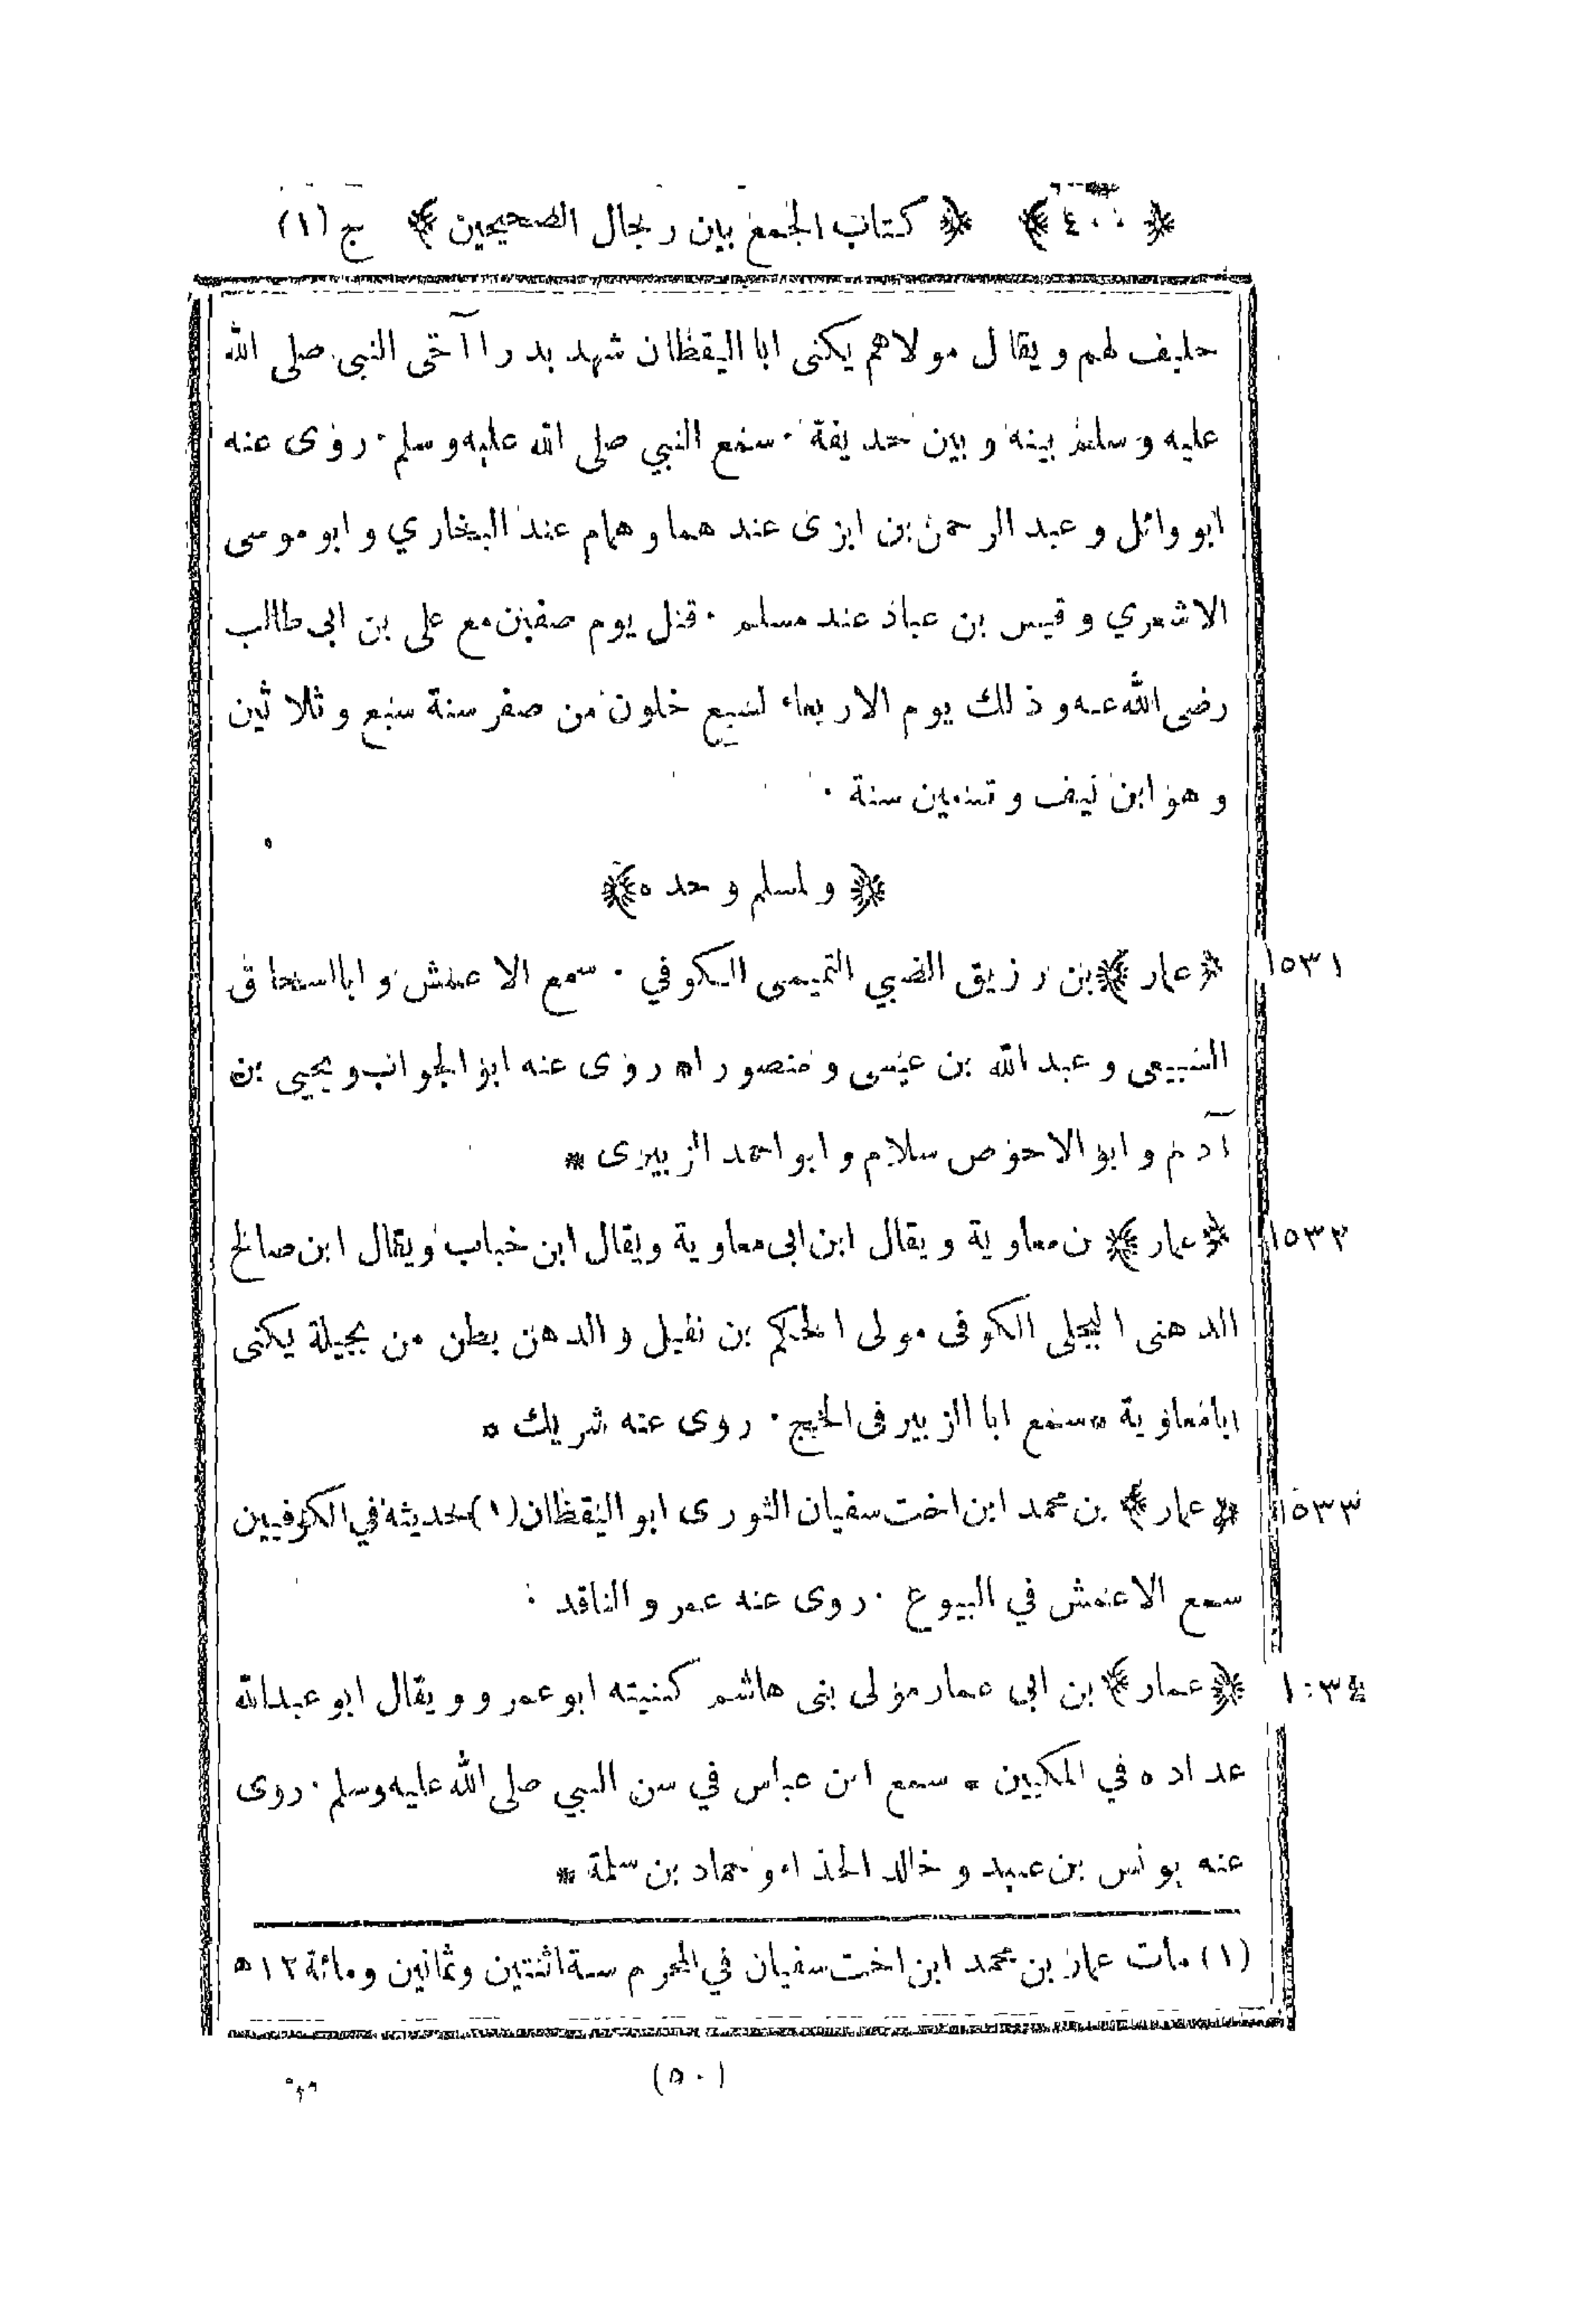 ﴿٤٠٠﴾ ﴿كتاب الجمع بين رجال الصحيحين﴾ ج (١)
حليف لهم ويقال مولاهم يكنى ابا اليقظان شهد بدرا آخى النبى صلى الله
عليه وسلم بينه وبين حذيفة · سمع النبي صلى الله عليه وسلم · روى عنه
ابو وائل وعبد الرحمن بن ابزى عندهما وهمام عند البخاري وابو موسى
الاشعري وقيس بن عباد عند مسلم · قتل يوم صفين مع على بن ابى طالب
رضى الله عنه وذلك يوم الاربعاء لسبع خلون من صفر سنة سبع وثلاثين
وهو ابن نيف وتسعين سنة ·
﴿ولمسلم وحده﴾
١٥٣١ ﴿عمار﴾ بن رزيق الضبي التميمى الكوفي · سمع الاعمش وابا اسحاق
السبيعى وعبد الله بن عيسى ومنصورا * روى عنه ابو الجواب ويحيى بن
آدم وابو الاحوص سلام وابو احمد الزبيرى *
١٥٣٢ ﴿عمار﴾ بن معاوية ويقال ابن ابى معاوية ويقال ابن خباب ويقال ابن صالح
الدهنى البجلى الكوفى مولى الحكم بن نفيل والدهن بطن من بجيلة يكنى
ابا معاوية * سمع ابا الزبير فى الحج · روى عنه شريك *
١٥٣٣ ﴿عمار﴾ بن محمد ابن اخت سفيان الثورى ابو اليقظان (١) حديثه في الكوفيين
سمع الاعمش في البيوع · روى عنه عمرو الناقد ·
١٥٣٤ ﴿عمار﴾ بن ابي عمار مولى بنى هاشم كنيته ابو عمرو ويقال ابو عبدالله
عداده في المكيين * سمع ابن عباس في سن النبي صلى الله عليه وسلم · روى
عنه يونس بن عبيد وخالد الحذاء وحماد بن سلمة *
(١) مات عمار بن محمد ابن اخت سفيان في المحرم سنة اثنتين وثمانين ومائة ١٢ ه
(٥٠)